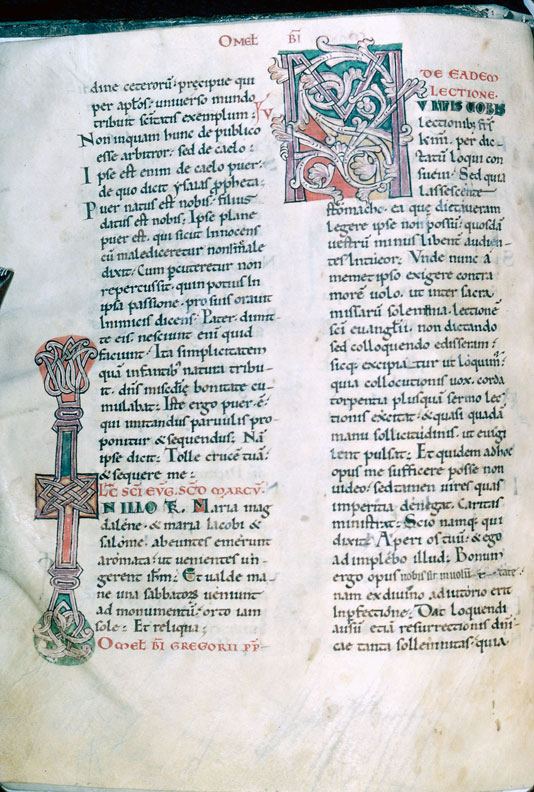 OMEL BI
dine ceterorū; precipue qui
per aplōs; universo mundo
tribuit scītatis exemplum;
Non inquam hunc de publico
esse arbitror; sed de caelo;
Ipse est enim de caelo puer;
de quo dicit ysaias ppheta;
Puer natus est nobis; filius
datus est nobis; Ipse plane
puer ē. qui sicut innocens
cū malediceretur non male
dixit; Cum percuteretur non
repercussit; quin potius in
ipsa passione; pro suis oravit
inimicis dicens; Pater dimit
te eis; nesciunt enī quid
faciunt; Ita simplicitatem
quā infantib; natura tribu
it; dn̄s misedīe bonitate cu
mulabat; Iste ergo puer ē;
qui imitandus parvulis pro
ponitur & sequendus; Nā
ipse dicit; Tolle crucē tuā;
& sequere me;
LC SCI EVG. SCDO MARCV
IN ILLO TR. Maria mag
dalene; & maria Iacobi &
salome abeuntes emerunt
aromata; ut venientes un
gerent ihm; Et valde ma
ne una sabbatorū veniunt
ad monumentū; orto iam
sole; Et reliqua;
OMEL BI GREGORII PP
DE EADEM
LECTIONE
MVLTIS VOBIS
lectionib; frs
kmi, per dic
tatū loqui con
suevi; Sed quia
lassescente
stomacho; ea que dictaveram
legere ipse non possū; quosdā
vestrū minus libent audien
tes intueor; Unde nunc a
memet ipso exigere contra
morē volo, ut inter sacra
missarū solemnia, lectionē
sci evangīii, non dictando
sed colloquendo edisseram;
sicq; excipiatur ut loquim;
quia collocutionis vox, corda
torpentia plusquā sermo lec
tionis excitat; & quasi quadā
manu sollicitudinis ut evigi
lent pulsat; Et quidem ad hoc
opus me sufficere posse non
video; sed tamen vires quas
imperitia denegat, caritas
ministrat; Scio namq; qui
dixit; Aperi os tuū; & ego
adimplebo illud; Bonum
ergo opus nobis sit in volun tate
nam ex divino adiutorio erit
in pfectione; Dat loquendi
ausū etiā resurrectionis dni
cae tanta sollemnitas; quia